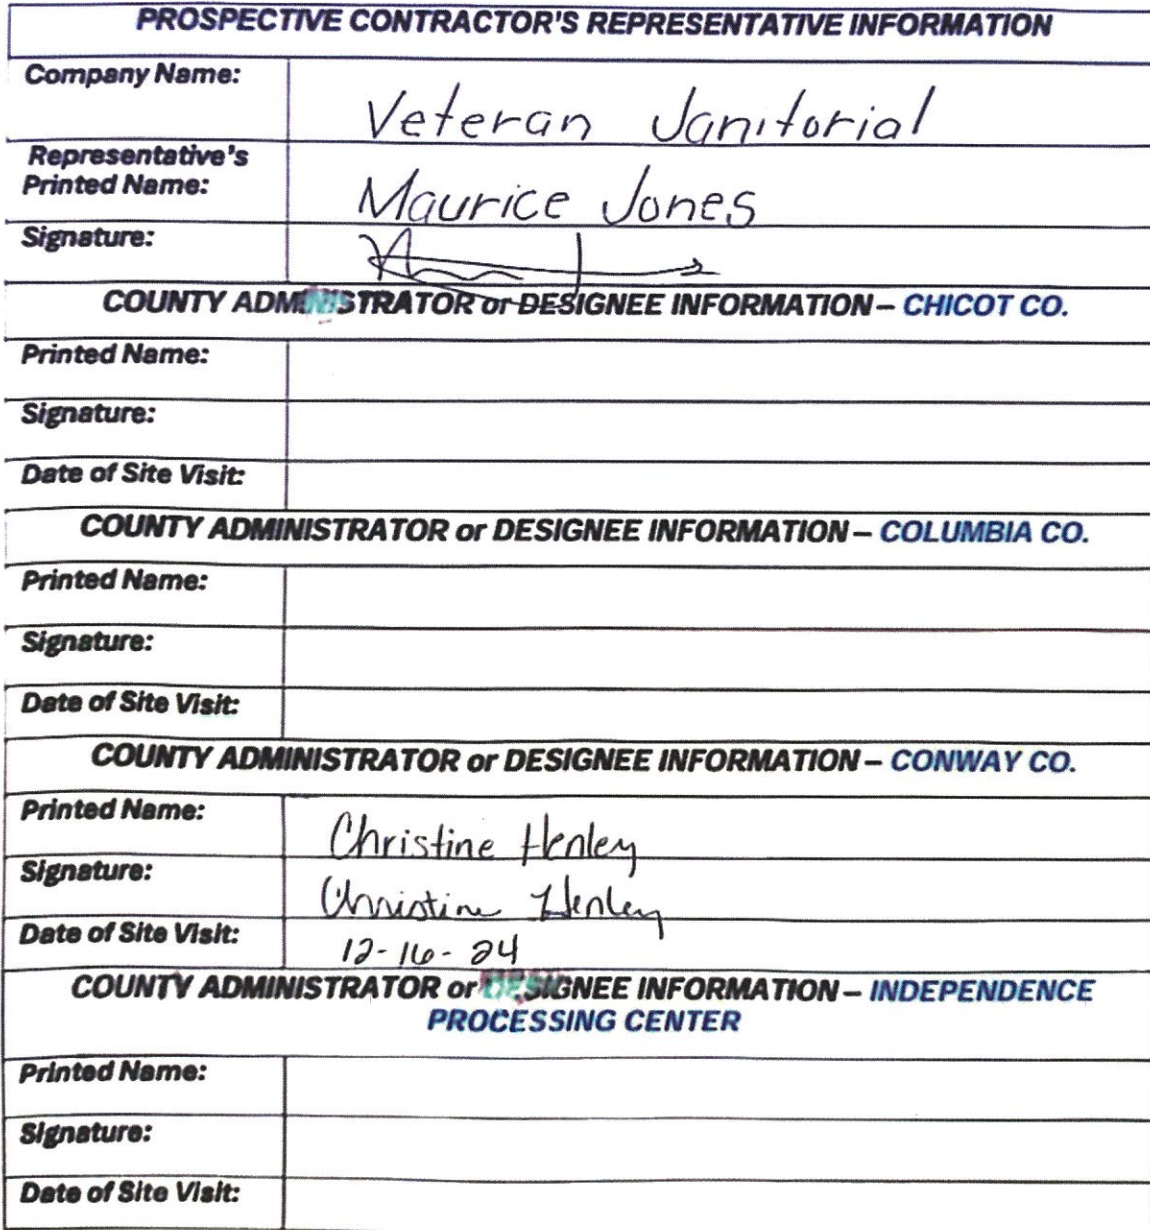 PROSPECTIVE CONTRACTOR'S REPRESENTATIVE INFORMATION
Company Name: Veteran Janitorial
Representative's
Printed Name: Maurice Jones
Signature:
COUNTY ADMINISTRATOR or DESIGNEE INFORMATION – CHICOT CO.
Printed Name:
Signature:
Date of Site Visit:
COUNTY ADMINISTRATOR or DESIGNEE INFORMATION – COLUMBIA CO.
Printed Name:
Signature:
Date of Site Visit:
COUNTY ADMINISTRATOR or DESIGNEE INFORMATION – CONWAY CO.
Printed Name: Christine Henley
Signature: Christine Henley
Date of Site Visit: 12-16-24
COUNTY ADMINISTRATOR or DESIGNEE INFORMATION – INDEPENDENCE
PROCESSING CENTER
Printed Name:
Signature:
Date of Site Visit: